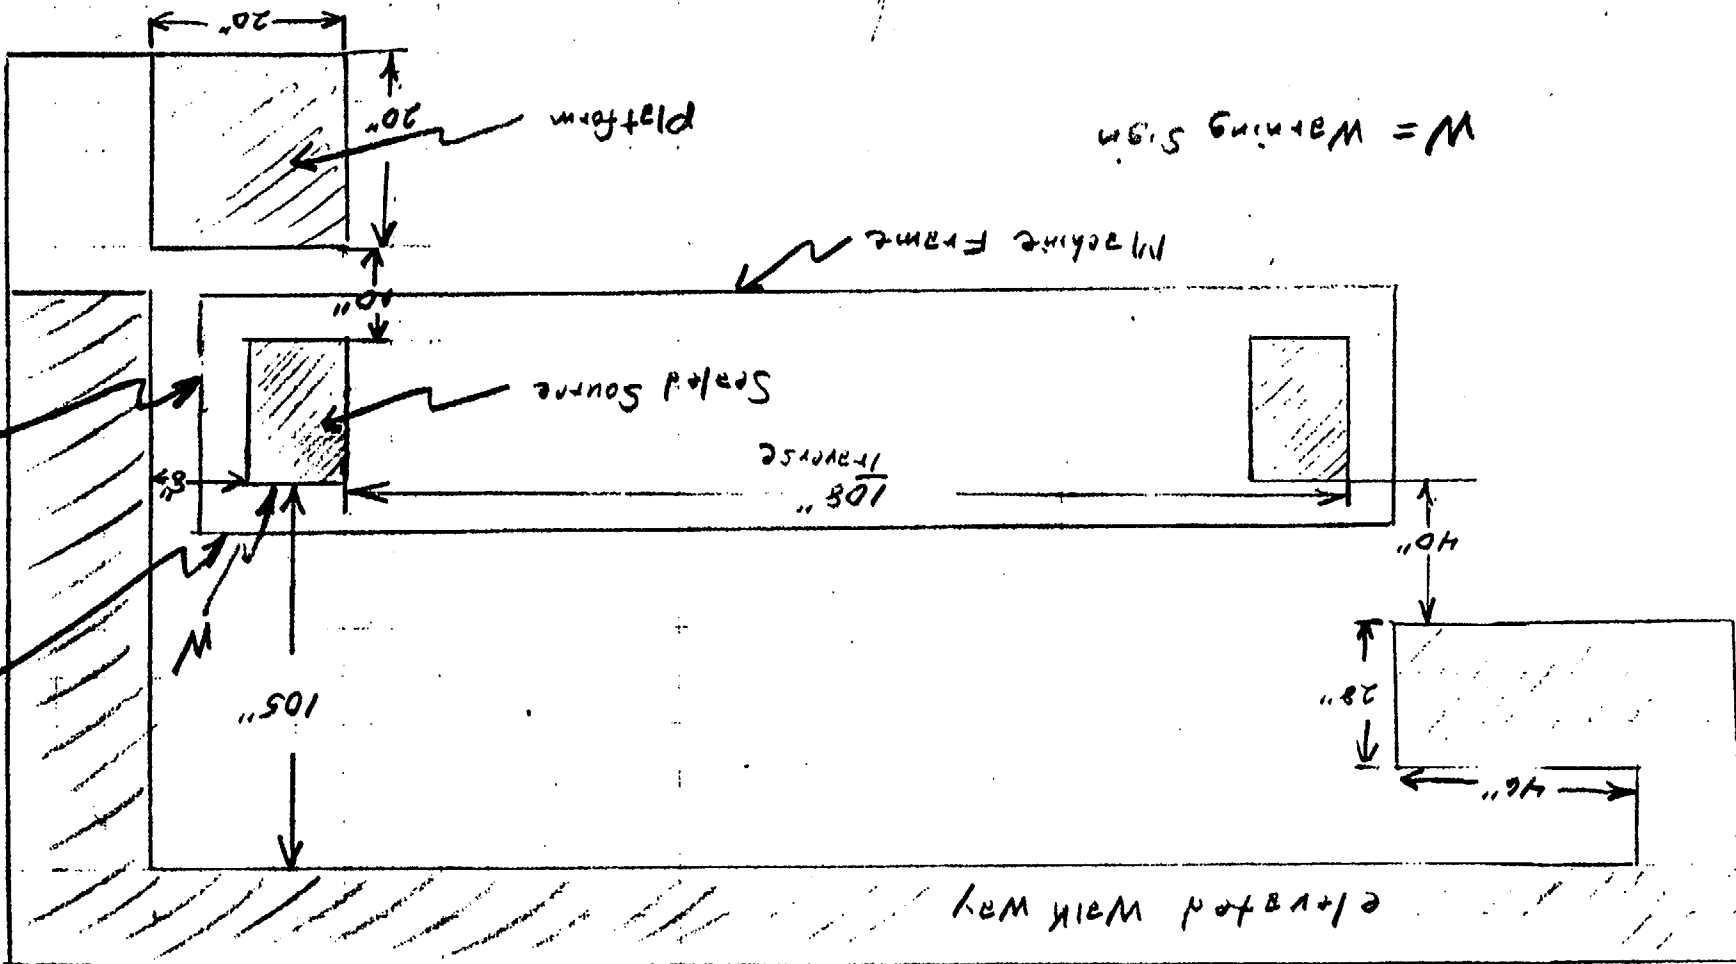 elevated Walk Way
46"
28"
105"
W
40"
108"
Traverse
8"
Sealed Source
10"
Machine Frame
W = Warning Sign
Platform
20"
20"